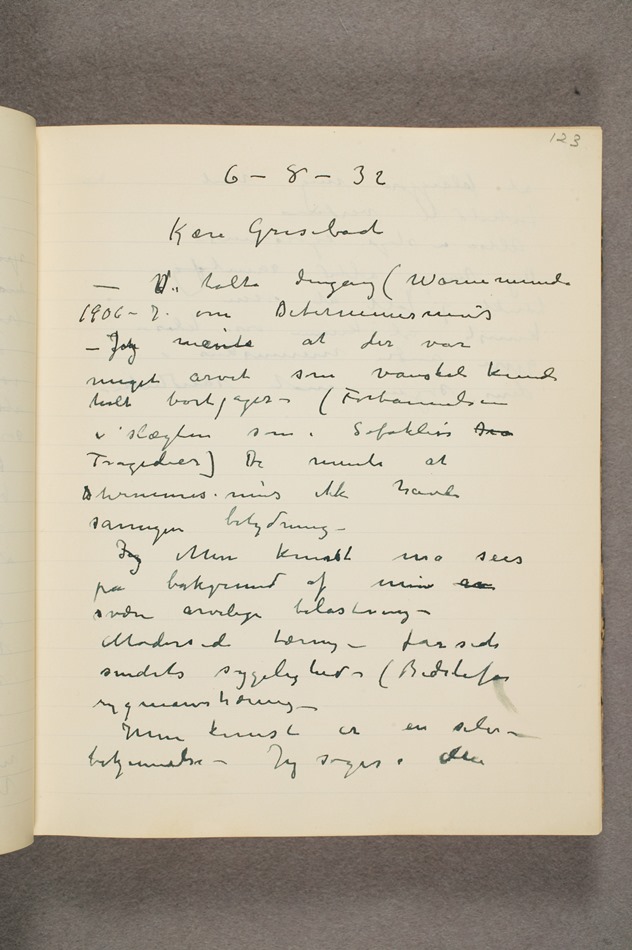 123
6 – 8 – 32
Kære Grisebach
– Vi talte engang (Warnemünde
1906–7. om Determinismus
– Jeg mente at der var
meget arvet som vanskel kunde
helt bortjages – (Forbannelsen
i slægten som i Sofokles's
Tragedier) De mente at
Determinis.mus ikk havde
saamegen betydning –
Jeg Min kunst må sees
på bakgrund af min en
svære arvelige belastning –
Moders id tæring – farsids
sindets sygelighed – (Bedstefar
rygmarvstæring –
Min kunst er en selv-
bekjennelse – Jeg søger i den